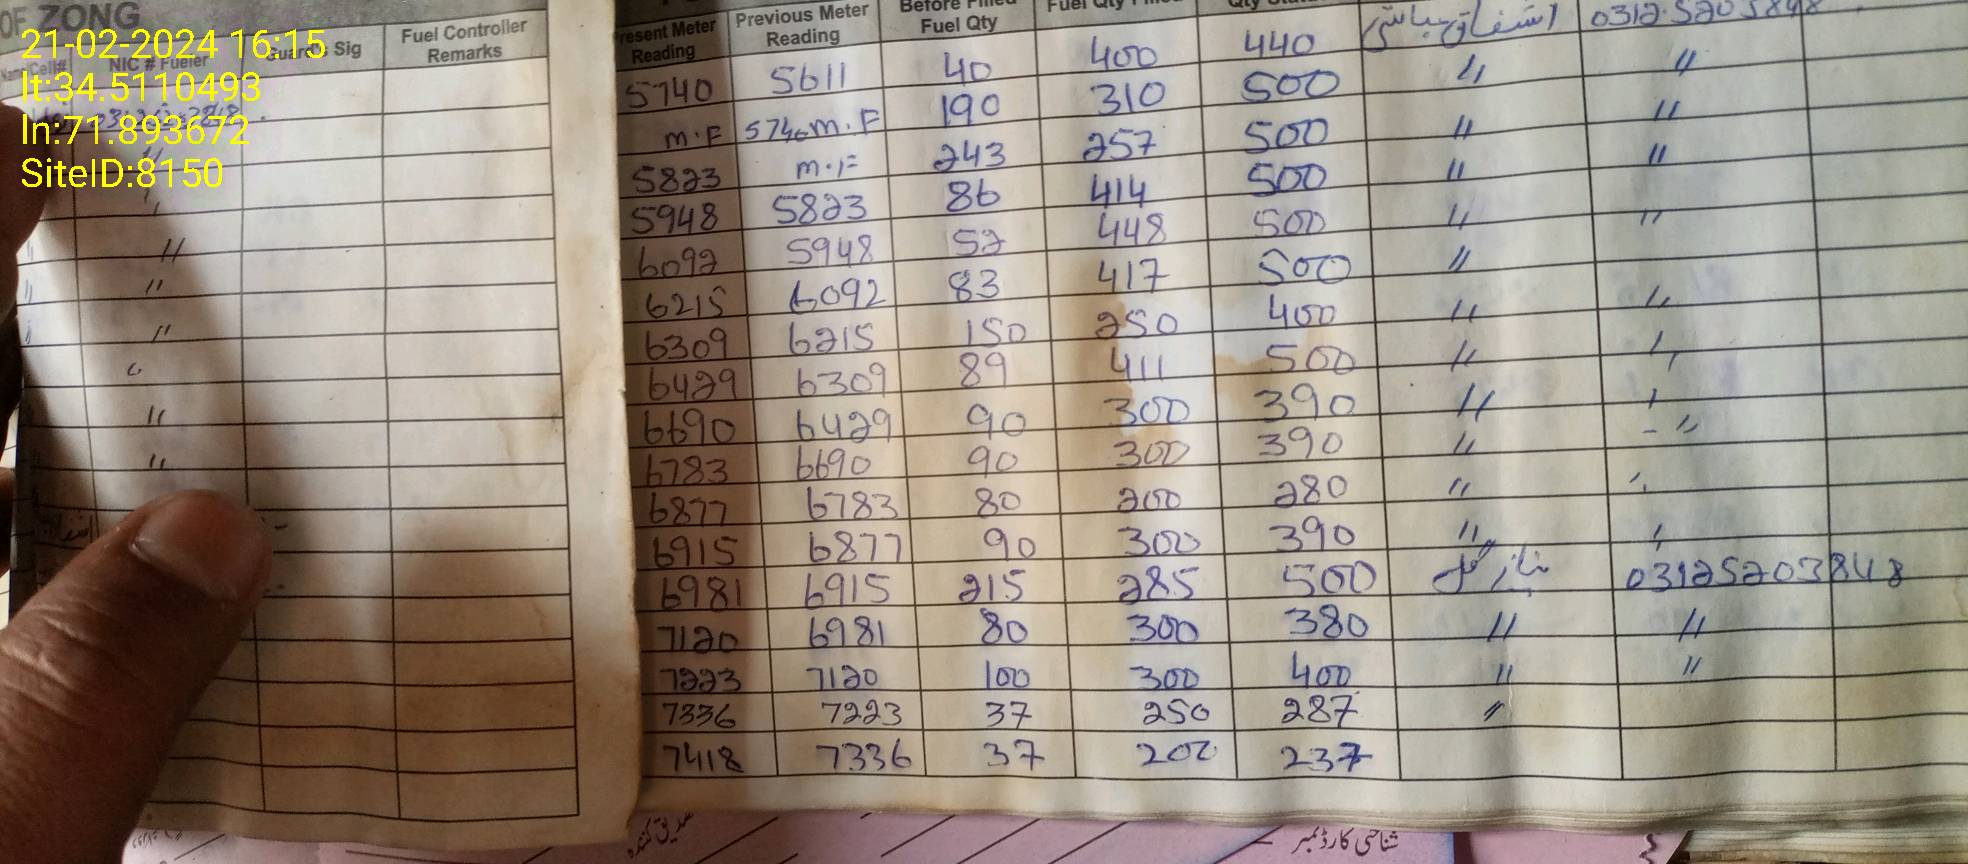 OF ZONG
21-02-2024 16:15
lt:34.5110493
ln:71.893672
SiteID:8150
NIC # Fueler Guard's Sig Fuel Controller Remarks
Present Meter Reading Previous Meter Reading Before Filled Fuel Qty
5740 5611 40 400 440 0312-5205848
m.F 5740 m.F 190 310 500 〃 〃
5823 m.F 243 257 500 〃 〃
5948 5823 86 414 500 〃 〃
6092 5948 52 448 500 〃 〃
6215 6092 83 417 500 〃
6309 6215 150 250 400 〃 〃
6429 6309 89 411 500 〃 〃
6690 6429 90 300 390 〃 〃
6783 6690 90 300 390 〃 〃
6877 6783 80 200 280 〃 〃
6915 6877 90 300 390 〃 〃
6981 6915 215 285 500 نیاز گل 03125203848
7120 6981 80 300 380 〃 〃
7223 7120 100 300 400 〃 〃
7336 7223 37 250 287 〃
7418 7336 37 200 237
تصدیق کنندہ
شناختی کارڈ نمبر